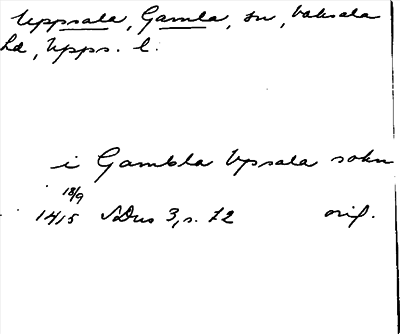 Uppsala, Gamla, sn, Vaksala
hd, Upps. l.
i Gambla Upsala sokn
18/9
1415 SDns 3, s. 72 orig.